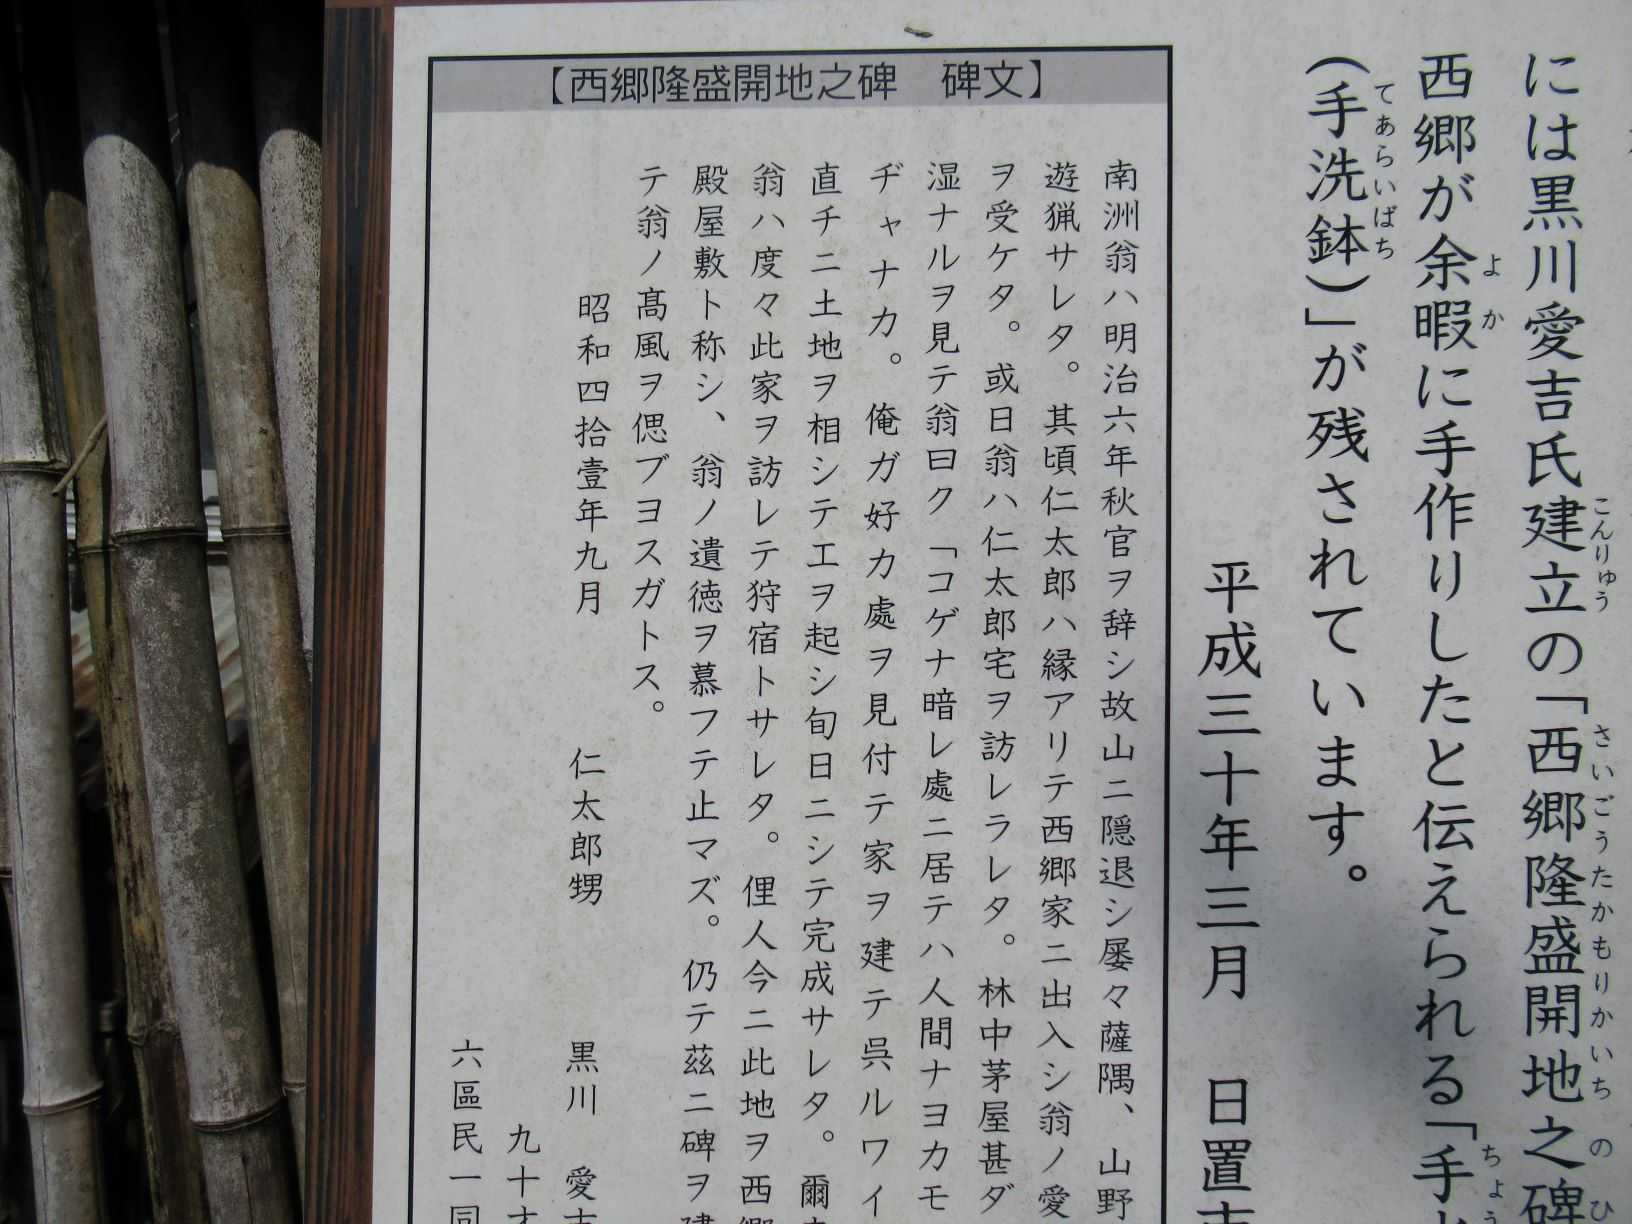 には黒川愛吉氏建立の「西郷隆盛開地之碑
こんりゅう
さいごうたかもりかいちのひ
西郷が余暇に手作りしたと伝えられる「手
よか
ちょう
(手洗鉢)」が残されています。
てあらいばち
平成三十年三月　日置市
【西郷隆盛開地之碑　碑文】
南洲翁ハ明治六年秋官ヲ辞シ故山ニ隠退シ屡々薩隅、山野
遊猟サレタ。其頃仁太郎ハ縁アリテ西郷家ニ出入シ翁ノ愛
ヲ受ケタ。或日翁ハ仁太郎宅ヲ訪レラレタ。林中茅屋甚ダ
湿ナルヲ見テ翁曰ク「コゲナ暗レ處ニ居テハ人間ナヨカモ
ヂャナカ。俺ガ好カ處ヲ見付テ家ヲ建テ呉ルワイ
直チニ土地ヲ相シテエヲ起シ旬日ニシテ完成サレタ。爾
翁ハ度々此家ヲ訪レテ狩宿トサレタ。俚人今ニ此地ヲ西郷
殿屋敷ト称シ、翁ノ遺徳ヲ慕フテ止マズ。仍テ茲ニ碑ヲ建
テ翁ノ髙風ヲ偲ブヨスガトス。
昭和四拾壹年九月　仁太郎甥　黒川　愛吉
九十才
六區民一同